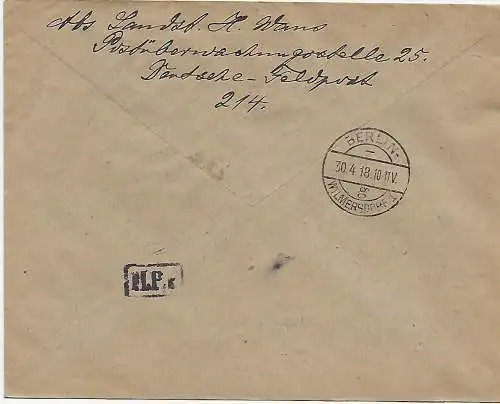 Abs Landst. H. Wans
Postüberwachungsstelle 25.
Deutsche-Feldpost
214.
BERLIN-
30.4.18.10-11V.
WILMERSDORF